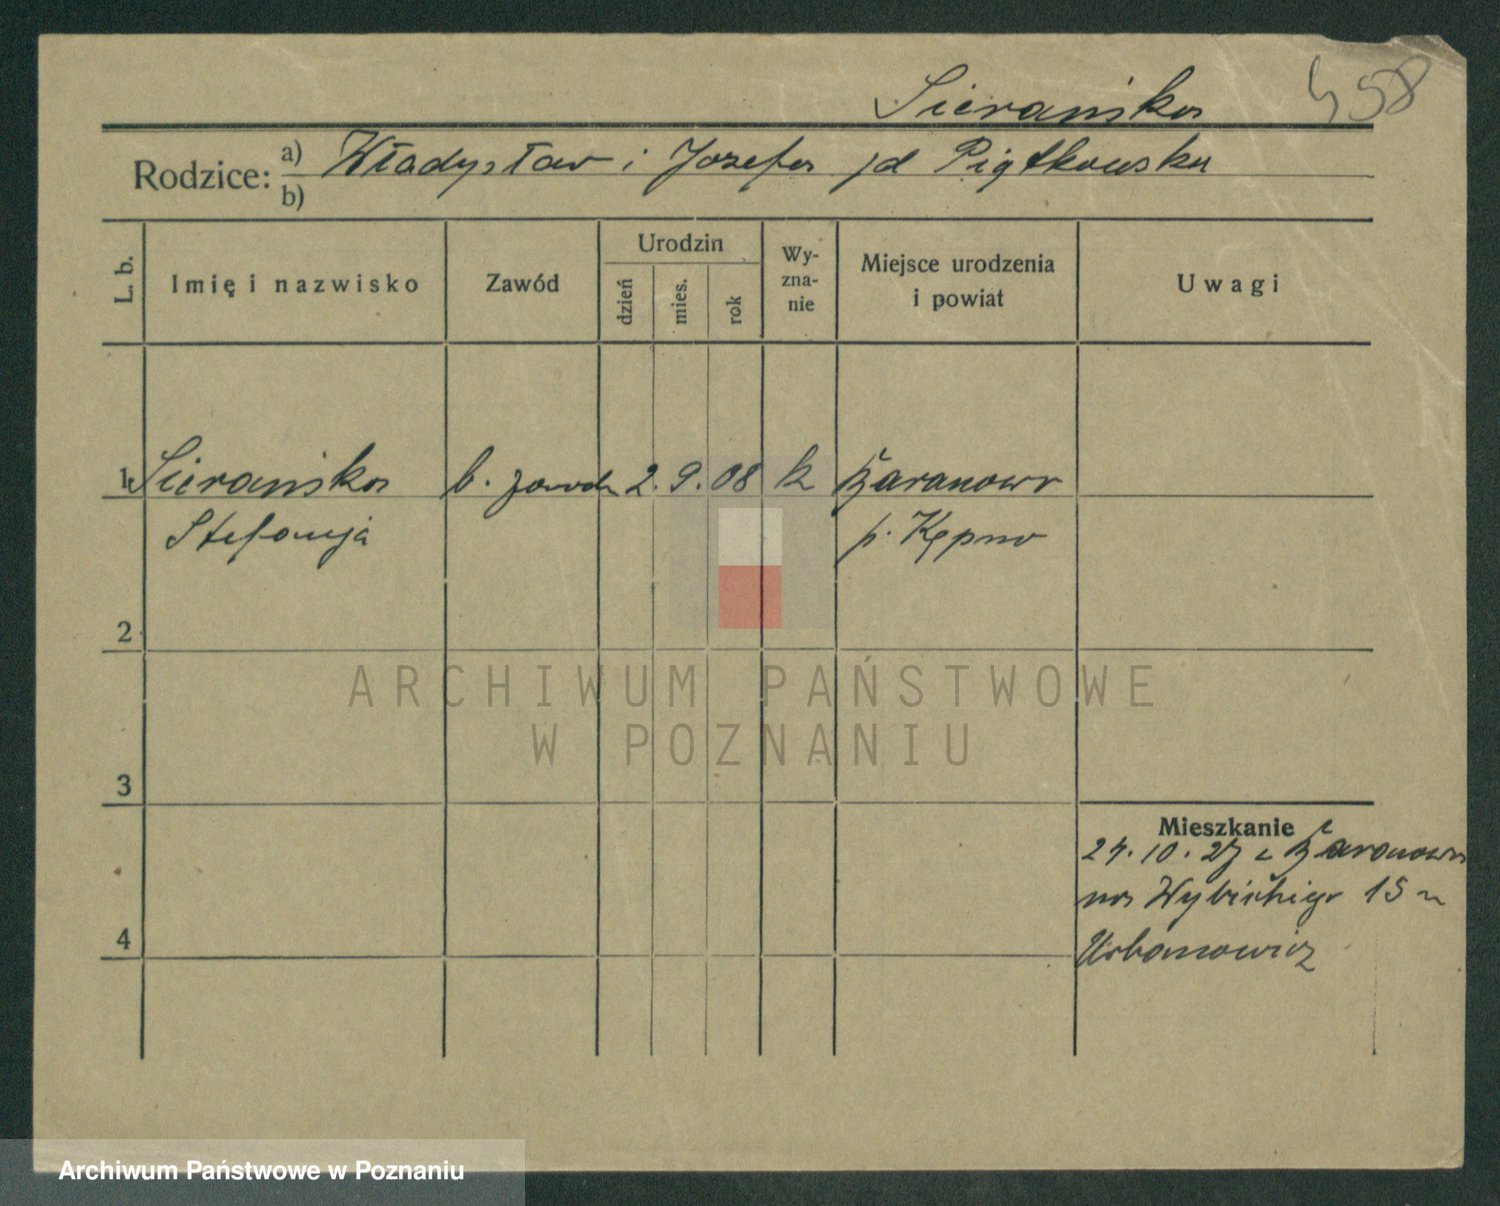 Sierańska 458
Rodzice: a) Władysław i Józefa jd Piątkowska
b)
L. b.
Imię i nazwisko
Zawód
Urodzin
dzień
mies.
rok
Wy-
zna-
nie
Miejsce urodzenia
i powiat
Uwagi
1 Sierańska b. zawodu 2. 9. 08 k Baranów
Stefanja p. Kępno
2
ARCHIWUM PAŃSTWOWE
W POZNANIU
3
Mieszkanie
24. 10. 27 z Baranowa
na Wybickiego 15 u
4
Urbanowicz
Archiwum Państwowe w Poznaniu